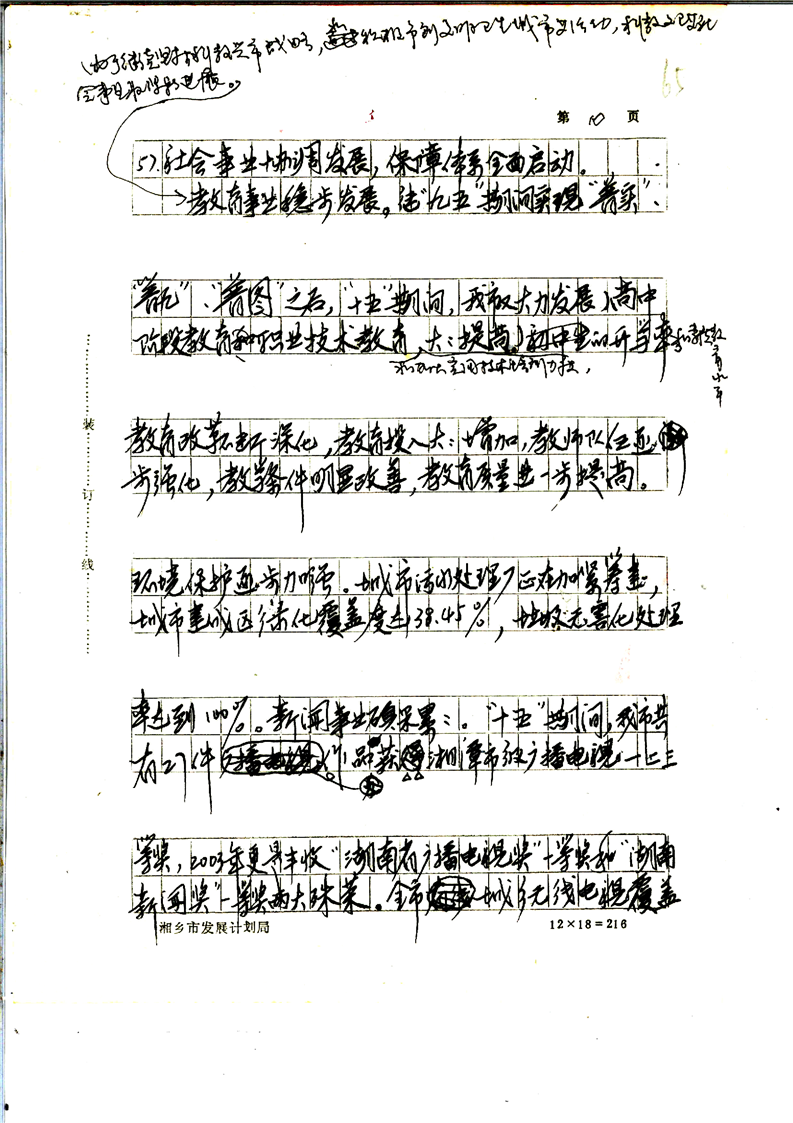 65
第 10 页
5).社会事业协调发展，保障体系全面启动。
教育事业稳步发展。继“九五”期间实现“普实”、
“普九”、“普图”之后，“十五”期间，我市致力发展高中
阶段教育和职业技术教育，大大提高初中生的升学率
教育改革不断深化，教育投入大大增加，教师队伍逐
步强化，教学条件明显改善，教育质量进一步提高。
环境保护逐步加强。城市污水处理厂正在加紧筹建，
城市建成区绿化覆盖度达38.45%，垃圾无害化处理
率达到100%。新闻事业硕果累累。“十五”期间，我市共
有27件作品获湘潭市级广播电视一二三
等奖，2003年更是丰收“湖南省广播电视奖”一等奖和“湖南
新闻奖”一等奖两大殊荣。全市城乡无线电视覆盖
湘乡市发展计划局
12×18=216
装
订
线